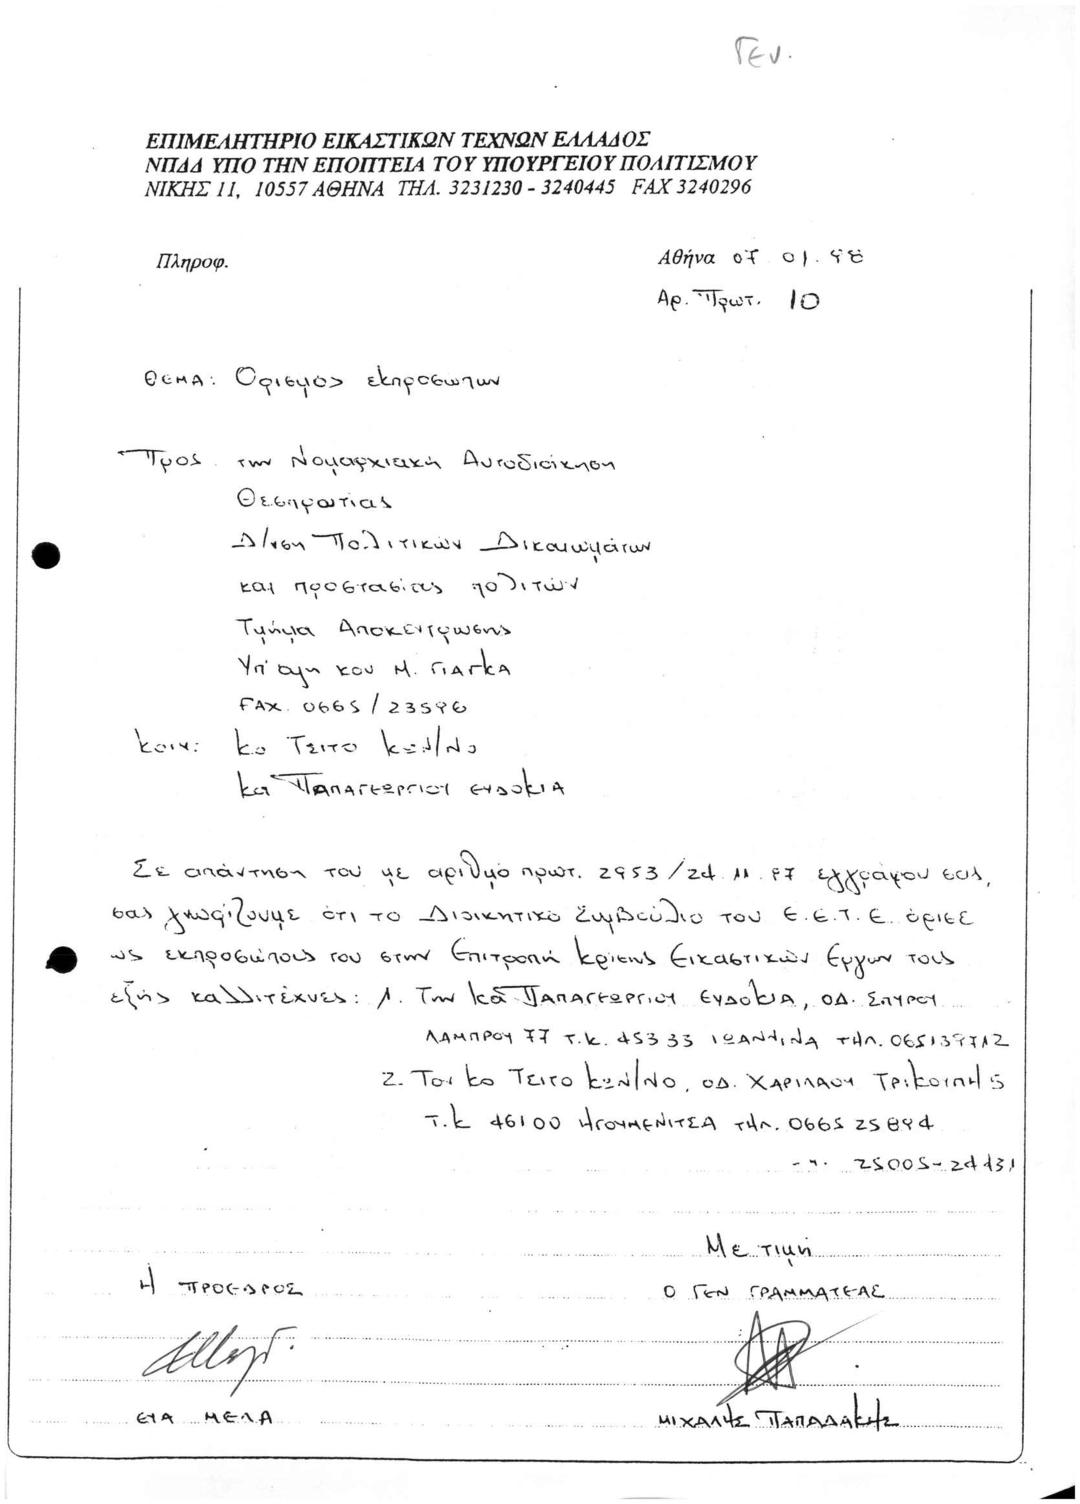 Γεν.
ΕΠΙΜΕΛΗΤΗΡΙΟ ΕΙΚΑΣΤΙΚΩΝ ΤΕΧΝΩΝ ΕΛΛΑΔΟΣ
ΝΠΔΔ ΥΠΟ ΤΗΝ ΕΠΟΠΤΕΙΑ ΤΟΥ ΥΠΟΥΡΓΕΙΟΥ ΠΟΛΙΤΙΣΜΟΥ
ΝΙΚΗΣ 11, 10557 ΑΘΗΝΑ ΤΗΛ. 3231230 - 3240445 FAX 3240296
Πληροφ.
Αθήνα 07 01.98
Αρ. Πρωτ. 10
ΘΕΜΑ: Ορισμός εκπροσώπων
Προς την Νομαρχιακή Αυτοδιοίκηση
Θεσπρωτίας
Δ/νση Πολιτικών Δικαιωμάτων
και προστασίας πολιτών
Τμήμα Αποκέντρωσης
Υπ' οψη κου Μ. ΓΙΑΓΚΑ
FAX. 0665/23596
Κοιν: κο ΤΣΙΤΟ ΚΩΝ/ΝΟ
κα ΠΑΠΑΓΕΩΡΓΙΟΥ ΕΥΔΟΚΙΑ
Σε απάντηση του με αριθμό πρωτ. 2953/24.11.97 εγγράφου σας,
σας γνωρίζουμε ότι το Διοικητικό Συμβούλιο του Ε.Ε.Τ.Ε. όρισε
ως εκπροσώπους του στην Επιτροπή Κρίσης Εικαστικών Εργων τους
εξής καλλιτέχνες: 1. Την κα ΠΑΠΑΓΕΩΡΓΙΟΥ ΕΥΔΟΚΙΑ, ΟΔ. ΣΠΥΡΟΥ
ΛΑΜΠΡΟΥ 77 Τ.Κ. 45333 ΙΩΑΝΝΙΝΑ ΤΗΛ. 065139712
2. Τον κο ΤΣΙΤΟ ΚΩΝ/ΝΟ, ΟΔ. ΧΑΡΙΛΑΟΥ ΤΡΙΚΟΥΠΗ 5
Τ.Κ 46100 ΗΓΟΥΜΕΝΙΤΣΑ ΤΗΛ. 0665 25894
-"- 25005-24131
Με τιμή
Η ΠΡΟΕΔΡΟΣ
Ο ΓΕΝ ΓΡΑΜΜΑΤΕΑΣ
ΕΥΑ ΜΕΛΑ
ΜΙΧΑΛΗΣ ΠΑΠΑΔΑΚΗΣ